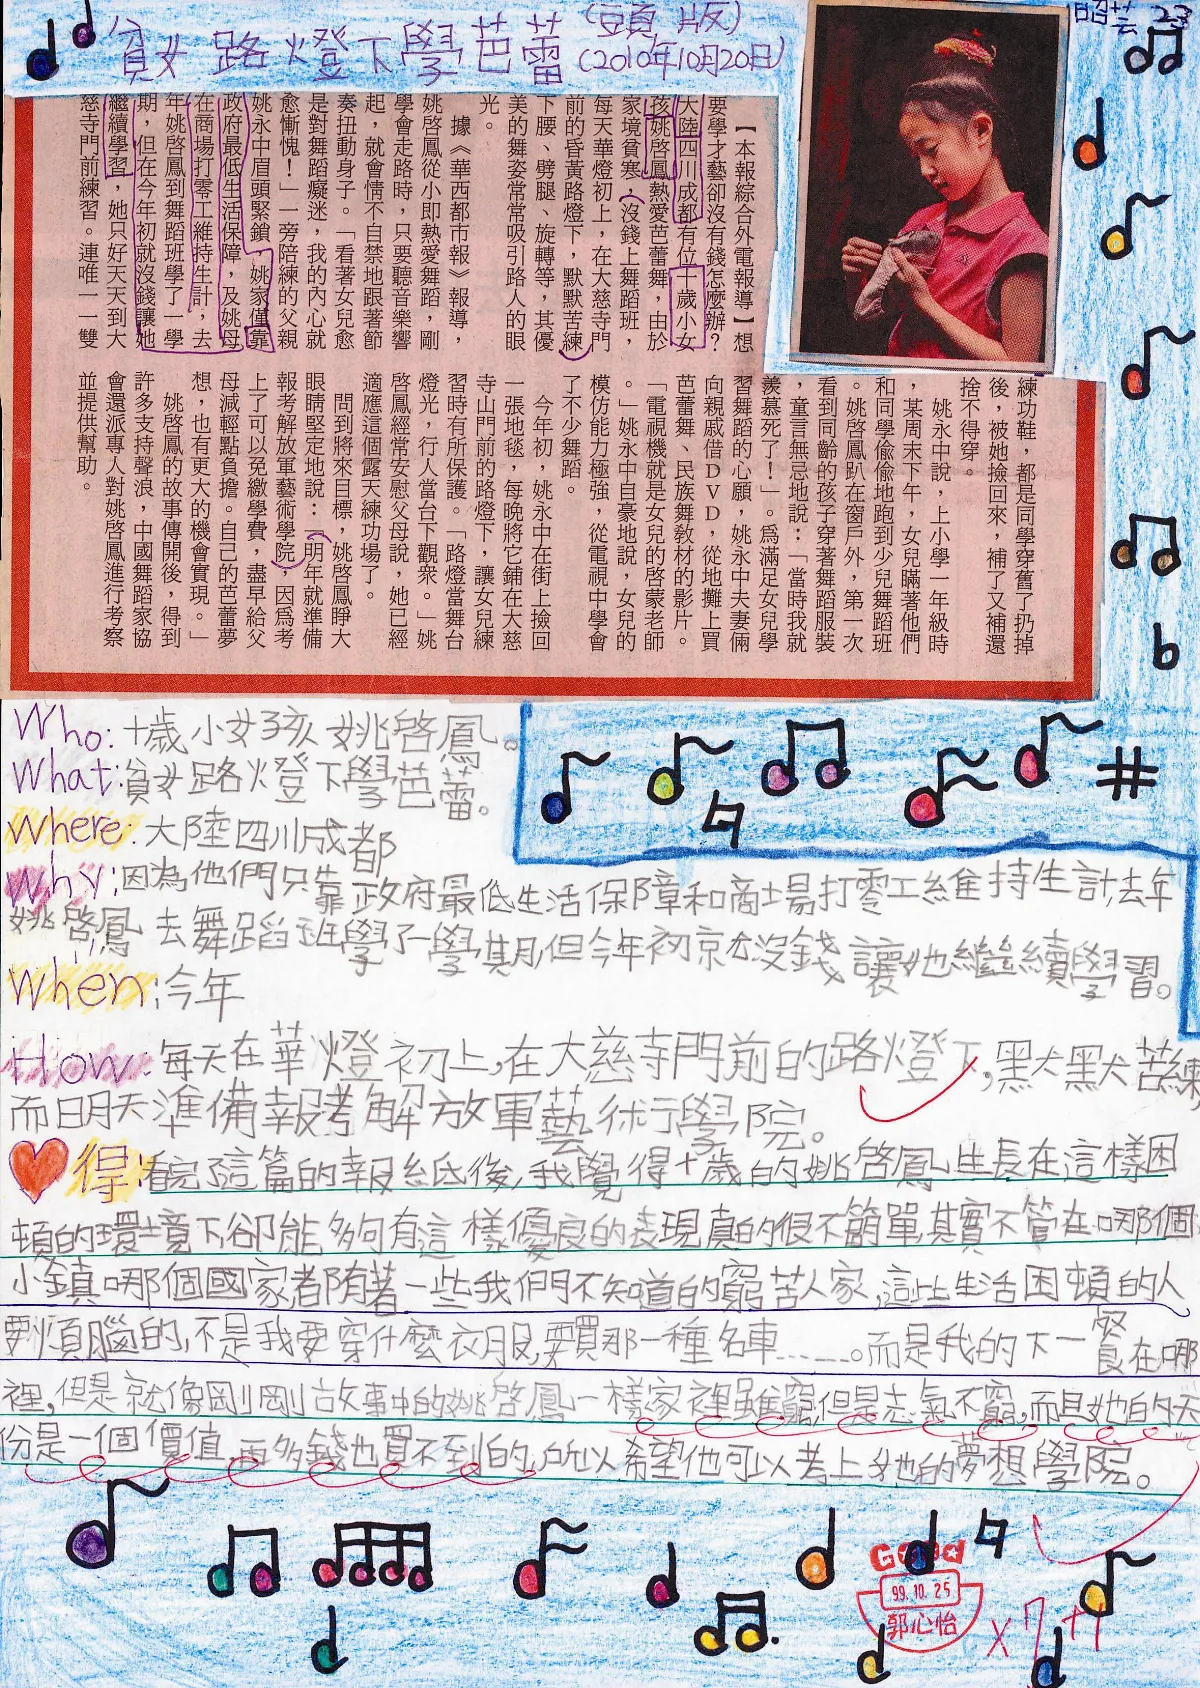 貧女路燈下學芭蕾(頭版)
(2010年10月20日)
昭芸 23
【本報綜合外電報導】想
要學才藝卻沒有錢怎麼辦?
大陸四川成都有位十歲小女
孩姚啓鳳熱愛芭蕾舞,由於
家境貧寒,沒錢上舞蹈班,
每天華燈初上,在大慈寺門
前的昏黃路燈下,默默苦練
下腰、劈腿、旋轉等,其優
美的舞姿常常吸引路人的眼
光。
據《華西都市報》報導,
姚啓鳳從小即熱愛舞蹈,剛
學會走路時,只要聽音樂響
起,就會情不自禁地跟著節
奏扭動身子。「看著女兒愈
是對舞蹈癡迷,我的內心就
愈慚愧!」一旁陪練的父親
姚永中眉頭緊鎖,姚家僅靠
政府最低生活保障,及姚母
在商場打零工維持生計,去
年姚啓鳳到舞蹈班學了一學
期,但在今年初就沒錢讓她
繼續學習,她只好天天到大
慈寺門前練習。連唯一一雙
練功鞋,都是同學穿舊了扔掉
後,被她撿回來,補了又補還
捨不得穿。
姚永中說,上小學一年級時
,某周末下午,女兒瞞著他們
和同學偷偷地跑到少兒舞蹈班
。姚啓鳳趴在窗戶外,第一次
看到同齡的孩子穿著舞蹈服裝
,童言無忌地說:「當時我就
羨慕死了!」。爲滿足女兒學
習舞蹈的心願,姚永中夫妻倆
向親戚借DVD,從地攤上買
芭蕾舞、民族舞教材的影片。
「電視機就是女兒的啓蒙老師
。」姚永中自豪地說,女兒的
模仿能力極強,從電視中學會
了不少舞蹈。
今年初,姚永中在街上撿回
一張地毯,每晚將它鋪在大慈
寺山門前的路燈下,讓女兒練
習時有所保護。「路燈當舞台
燈光,行人當台下觀衆。」姚
啓鳳經常安慰父母說,她已經
適應這個露天練功場了。
問到將來目標,姚啓鳳睜大
眼睛堅定地說:「明年就準備
報考解放軍藝術學院,因爲考
上了可以免繳學費,盡早給父
母減輕點負擔。自己的芭蕾夢
想,也有更大的機會實現。」
姚啓鳳的故事傳開後,得到
許多支持聲浪,中國舞蹈家協
會還派專人對姚啓鳳進行考察
並提供幫助。
Who:十歲小女孩姚啓鳳。
What:貧女路燈下學芭蕾。
Where:大陸四川成都
Why:因為他們只靠政府最低生活保障和商場打零工維持生計,去年
姚啓鳳去舞蹈班學了一學期,但今年初就沒錢讓她繼續學習。
When:今年
How:每天在華燈初上,在大慈寺門前的路燈下,默默苦練,
而明天準備報考解放軍藝術學院。
得:看完了這篇的報紙後,我覺得十歲的姚啓鳳生長在這樣困
頓的環境下,卻能夠有這樣優良的表現真的很不簡單,其實不管在哪個
小鎮哪個國家,都有著一些我們不知道的窮苦人家,這些生活困頓的人
要煩腦的,不是我要穿什麼衣服,要買那一種名車……。而是我的下一餐在哪
裡,但是就像剛剛故事中的姚啓鳳一樣家裡雖窮,但是志氣不窮,而且她的天
份是一個價值再多錢也買不到的,所以希望他可以考上她的夢想學院。
GOOD
99.10.25
郭心怡
x7+1